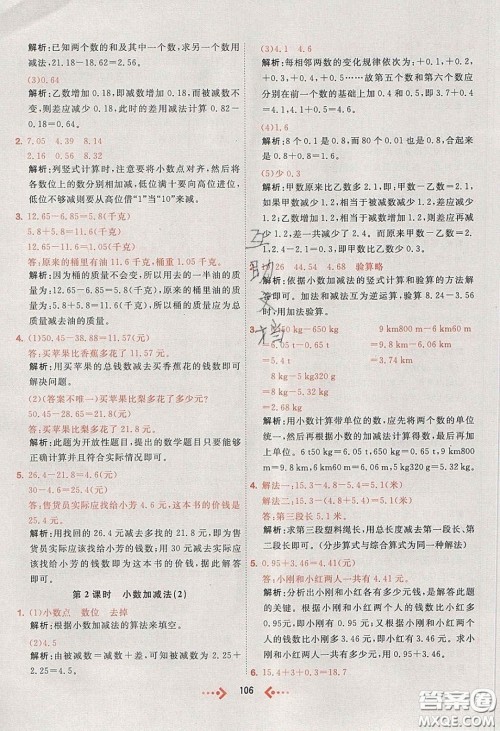 解析:已知两个数的和及其中一个数,求另一个数用
减法,21.18-18.62=2.56。
(3)0.64
解析:乙数增加0.18,即减数增加0.18,被减数不
变,则差应减少0.18,此时的差用减法计算0.82-
0.18=0.64。
2. 7.05 4.39 8.14
2.16 0.56 9.32
解析:列竖式计算时,注意要将小数点对齐,然后把
各数位上的数分别相加减,加法满十要向高位进位,
减法不够减则要从高位借“1”当“10”来减。
3. 12.65-6.85=5.8(千克)
5.8+5.8=11.6(千克)
12.65-11.6=1.05(千克)
答:原来的桶里有油11.6千克,桶重1.05千克。
解析:因为桶的质量不变,所以用去的一半油的质
量也是桶里剩下油的质量,即原来桶里油的质量为
两个5.8千克,相加即可。桶的质量用原来桶和油的总
质量减去油的质量。
4. (1)50.45-38.57=11.88(元)
答:买苹果比香蕉多花了11.88元。
解析:用买苹果的总钱数减去买香蕉花的钱数即可
解决问题。
(2)(答案不唯一)买苹果比梨多花了多少元?
50.45-28.8=21.65(元)
答:买苹果比买梨多花了21.65元。
解析:此题为开放性题目,提出的数学题目只要计算
正确并且符合实际情况即可。
5. 26.4-21.8=4.6(元)
30-4.6=25.4(元)
答:售货员实际应找给小芳4.6元,这本书的价钱是
25.4元。
解析:用找回的26.4元减去多找的21.8元,即为
售货员实际应该找给小芳的钱数,再用30元减去实
际应该找给小芳的钱数即为这本书的价钱。
第2课时 小数加减法(2)
1. (1)小数点 数位 去掉
解析:根据小数加减法的算法来填空。
(2)4.5
解析:由被减数=减数+差,可得被减数为2.25+
2.25=4.5。
(3)4.1 4.6
解析:每相邻两数的变化规律依次为:+0.1,+0.
2,+0.1,+0.3,+0.1……故第五个数和第六个数应
分别在前一个数的基础上加0.4和0.5,即3.7+0.4
=4.1,4.1+0.5=4.6。
(4)1.6
解析:8个0.1是0.8,而80个0.01也是0.8,所以
0.8+0.8=1.6。
(5)少0.3
解析:甲数原来比乙数多2.1,即:甲数-乙数=2.
1,甲数减少1.2,相当于被减数减少1.2,则差应减
少1.2,乙数增加1.2,相当于减数增加1.2,则差再
减少1.2,差一共减少2.4,原来甲数比乙数多2.1,
2.4-2.1=0.3,则现在甲数反而比乙数少0.3。
26 44.54 4.68 验算略
解析:依据小数加减法的竖式计算和验算的方法解
答即可。加法和减法互为逆运算,验算8.24-3.56
时,用加法验算。
650 kg-650 kg 9 km800 m-6 km40 m
=9.8 km-6.04 km
=6.05 t =3.76 km
8 kg-5 kg320 g
=2.68 kg
解析:用小数计算带单位的数,应先将两个数的单位
统一,然后再根据小数的加减法计算得数,最后将得
数带上单位。6 t50 kg=6.05 t,650 kg=0.65 t,9 km800
m=9.8 km,6 km40 m=6.04 km,5 kg320 g=5.32 kg。
答:第三段长5.1米。
解析:求第三段绳长,用绳子总长减去第一段长、第
二段长即可。(分步算式与综合算式均为正确)
5. 0.95+3.46=4.41(元)
0.95+4.41=5.36(元)
答:小刚和小红两人一共有5.36元。
解析:分析出小刚和小红两人每人的钱数是解此题
的关键。小刚和小红两人的钱数之差是3.46元,即小
刚比小红多3.46元,用小红的钱数加上3.46元即为小
刚的钱数,求小刚和小红两人一共有多少钱,用小
刚和小红两人的钱数相加即可。
6. 15.4+3+0.3=18.7
106
互助文档
答案圈
MXQE.COM